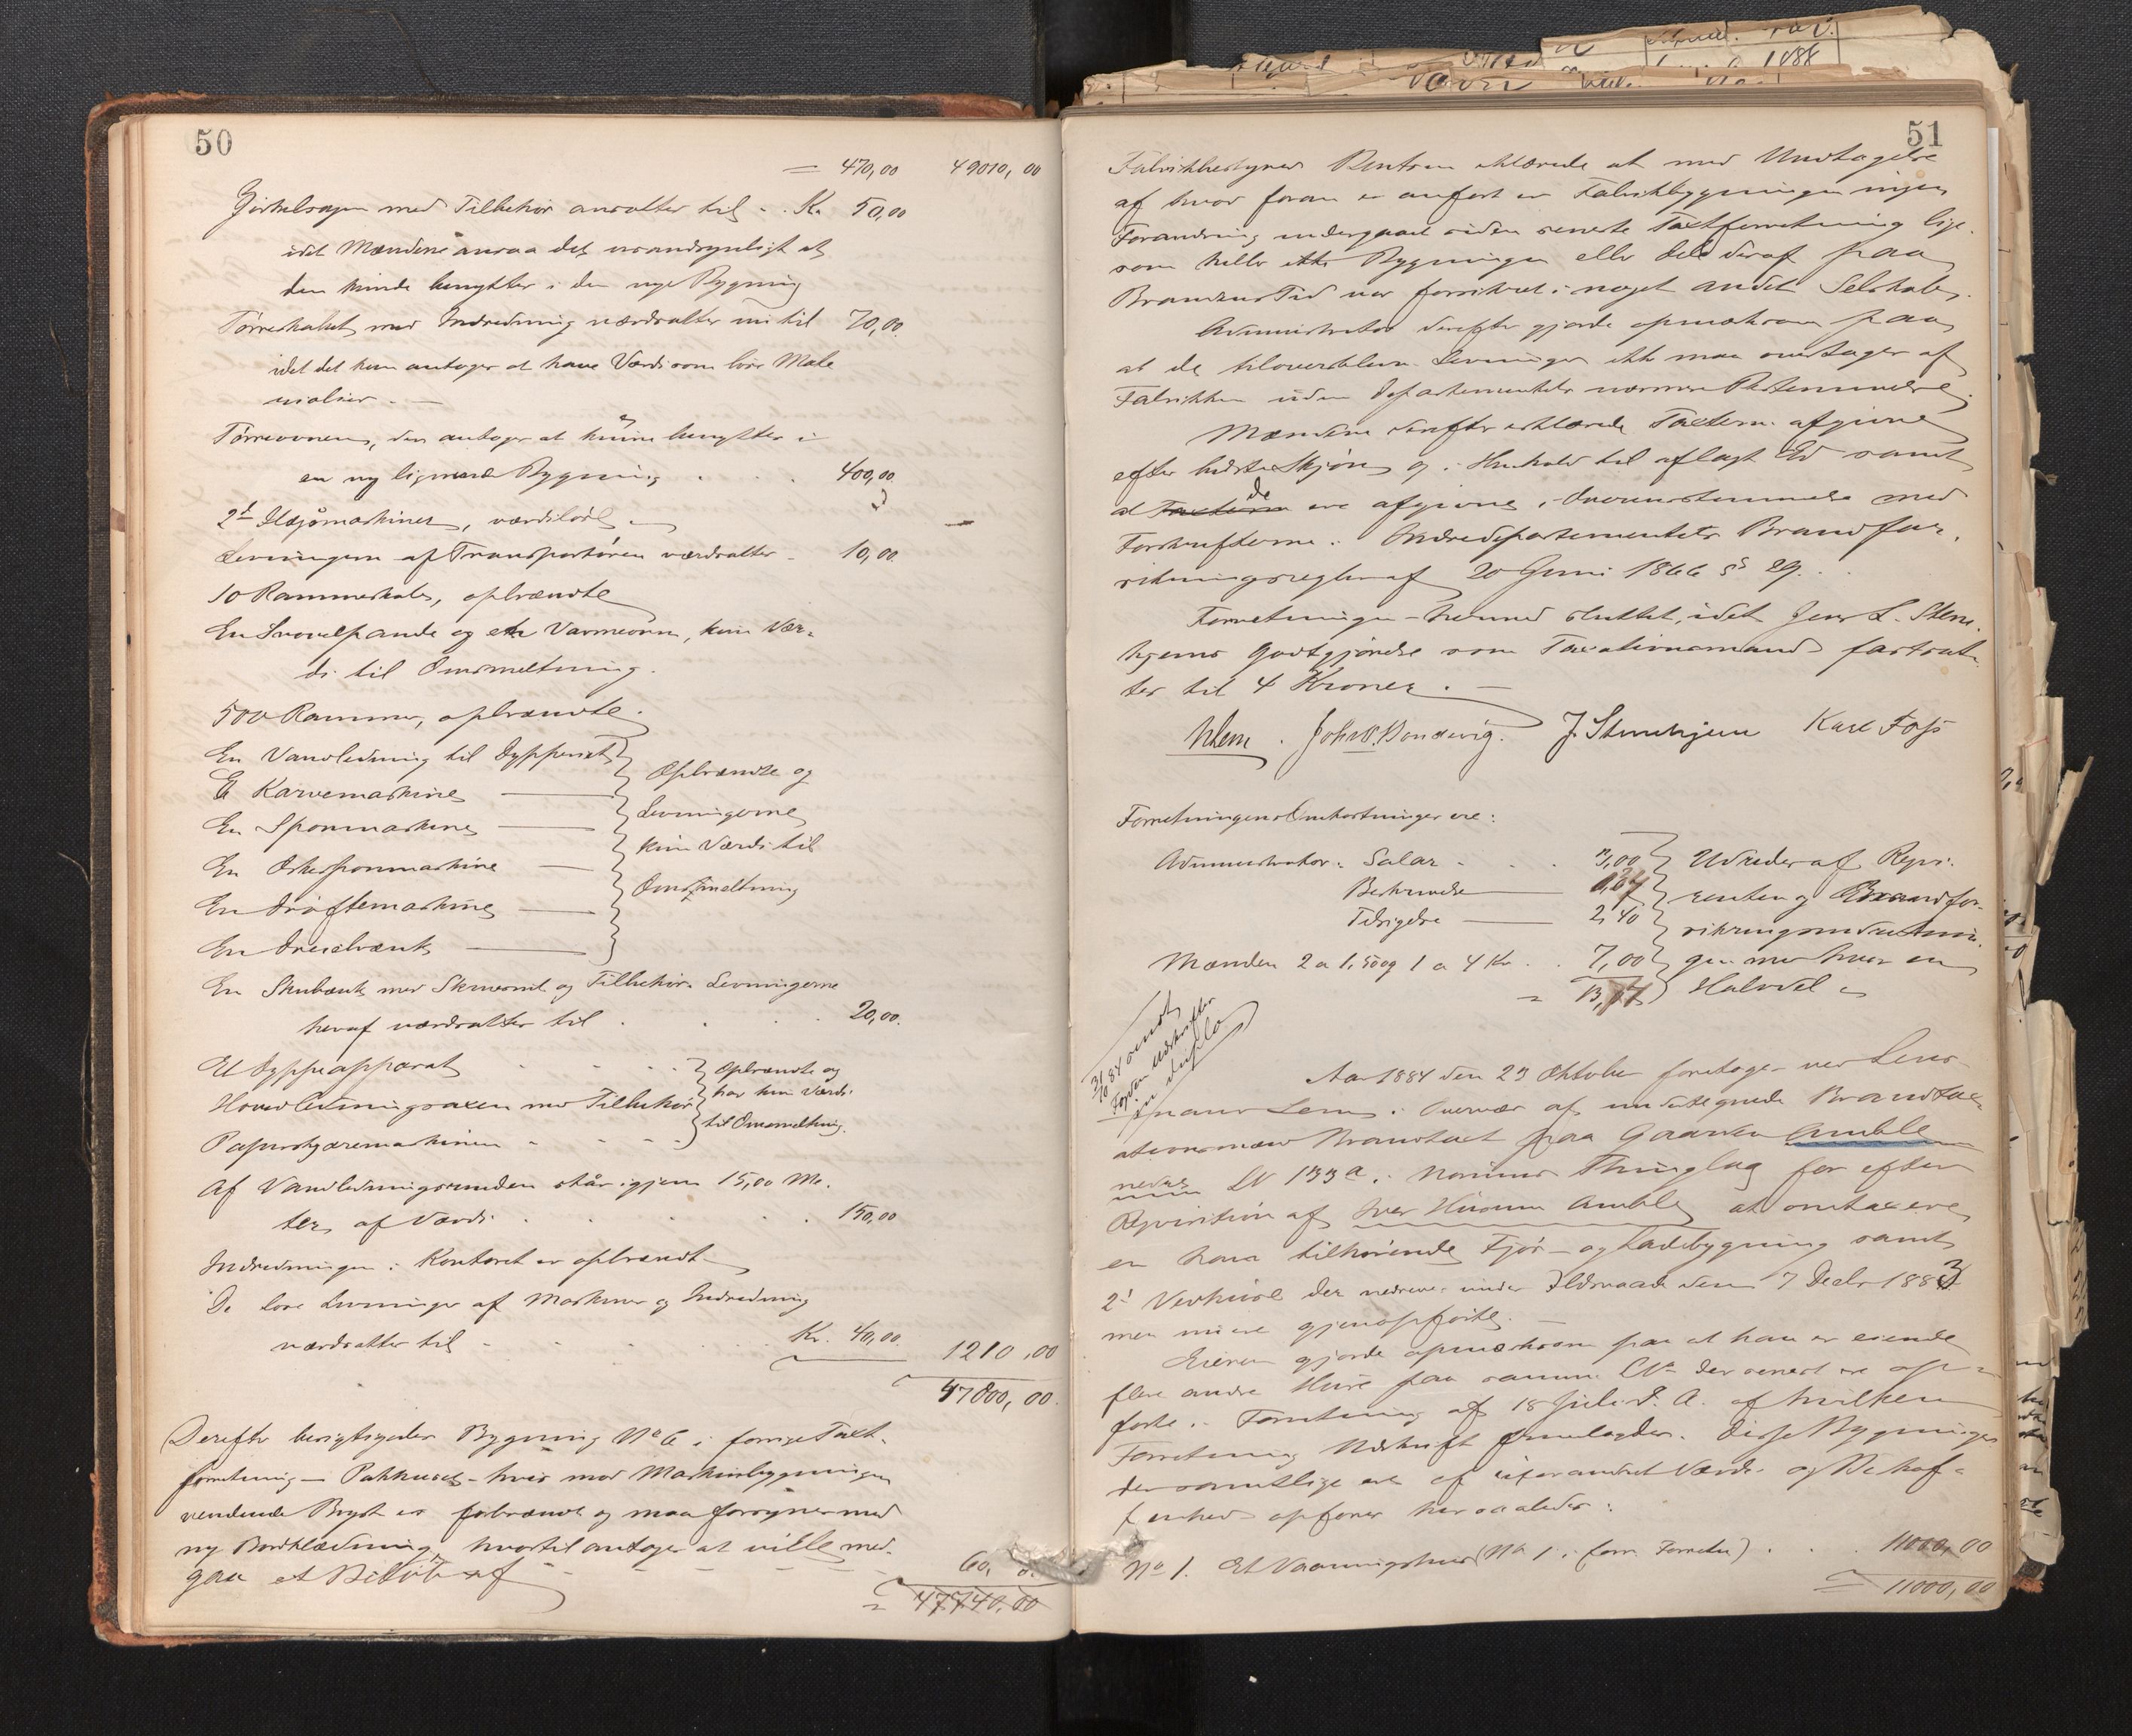 50
= 470,00 49010,00
Zirkelsagen med Tilbehør ansættes til . . Kr. 50,00
idet Mændene ansaa det usandsynligt at
den kunde benyttes i den nye Bygning
Tørreskabet med Indredning værdsattes nu til 70,00.
idet det kun antages at have Værdi som løse Mate
rialier. —
Tørreovnen, den antages at kunne benyttes i
en ny lignende Bygning . . . 400,00.
2de Høsjmaskiner, værdiløse — —
Levningerne af Transportøren værdsattes - 10,00.
10 Rammeskabe, opbrændte
En Svovelpande og en Varmeovn, kun Vær-
di til Omsmeltning.
500 Rammer, opbrændte.
En Vandledning til Dypperiet
En Karvemaskine
En Sponmaskine
En Æskesponmaskine
En Drøftemaskine
En Dreiebænk
Opbrændte og
Levningerne
kun Værdi til
Omsmeltning
En Skrubænk med Skruesnit og Tilbehør. Levningerne
heraf værdsattes til . . . 20,00.
Et Dyppeapparat . . . .
Hovedledningsaxen med Tilbehør
Papirskjæremaskinen - - - -
Opbrændte og
har kun Værdi
til Omsmeltning.
Af Vandledningsrenden står igjen 15,00 Me-
ter, af Værdi . . . . 150,00
Indredningen i Kontoret er opbrændt
De løse Levninger af Maskiner og Indredning
værdsattes til - - . Kr. 40,00. 1210,00
47800,00.
Derefter besigtigedes Bygning No 6 i forrige Taxt-
forretning — Pakhuset - hvis mod Maskinbygningen
vendende Bryst er forbrændt og maa forsynes med
ny Bordklædning, hvortil antages at ville med-
gaa et Beløb af - - - - - 60,
= 47740,00
51
Fabrikbestyrer Bentsen erklærede at med Undtagelse
af hvad foran er anført er Fabrikbygningen ingen
Forandring undergaaet siden seneste Taxtforretning lige-
som heller ikke Bygningen eller dele deraf paa
Brandens Tid var forsikret i noget andet Selskab.
Administrator derefter gjorde opmærksom paa
at de tiloversblevne Levninger ikke maa overtages af
Fabrikken uden Departementets nærmere Bestemmelse.
Mændene derefter erklærede Taxterne afgivne
efter bedste Skjøn og i Henhold til aflagt Ed samt
at de ere afgivne i Overensstemmelse med
Forskrifterne i Indredepartementets Brandfor-
sikringsregler af 20 Juni 1866 §§ 29. . .
Forretningen — hermed sluttet, idet Jens L. Sten-
hjems Godtgjørelse som Taxationsmand fastsat-
tes til 4 Kroner. —
NLem . Joh. B. Bondevig. J. Stenehjem Karl Foss
Forretningens Omkostninger ere:
Administrator: Salær - . . .
Beskrivelse
Tilsigelse — 2,40
Mændene 2 a 1,50 og 1 a 4 Kr. . . 7,00
Udredes af Repi-
renten og Brandfor-
sikringsindretnin-
gen med hver en
Halvdel
31/10 84 sendt
Fogden Udskrifter
in duplo
Aar 1884 den 23 Oktober foretoges ved Lens-
mand Lem i Overvær af undertegnede Brandtax-
ationsmænd Brandtaxt paa Gaarden Amble
nedre LN 133a. i Norums Thinglag for efter
Reqvisition af Iver Husum Amble at omtaxere
en ham tilhørende Fjøs- og Ladebygning samt
2de Vedhuse der nedreves under Ildsvaade den 7 Decbr 1883
men nu ere gjenopførte. —
Eieren gjorde opmærksom paa at han er eiende
flere andre Huse paa samme LN der senest ere op-
førte i Forretning af 18 Juli d. A. af hvilken
Forretning Udskrift fremlagdes. Disse Bygninger
der samtlige ere af uforandret Værdi og Beskaf-
fenhed opføres her saaledes:
No 1. Et Vaaningshus (No 1 i forr. Forretn) . . . 11000,00
= 11000,00
1888